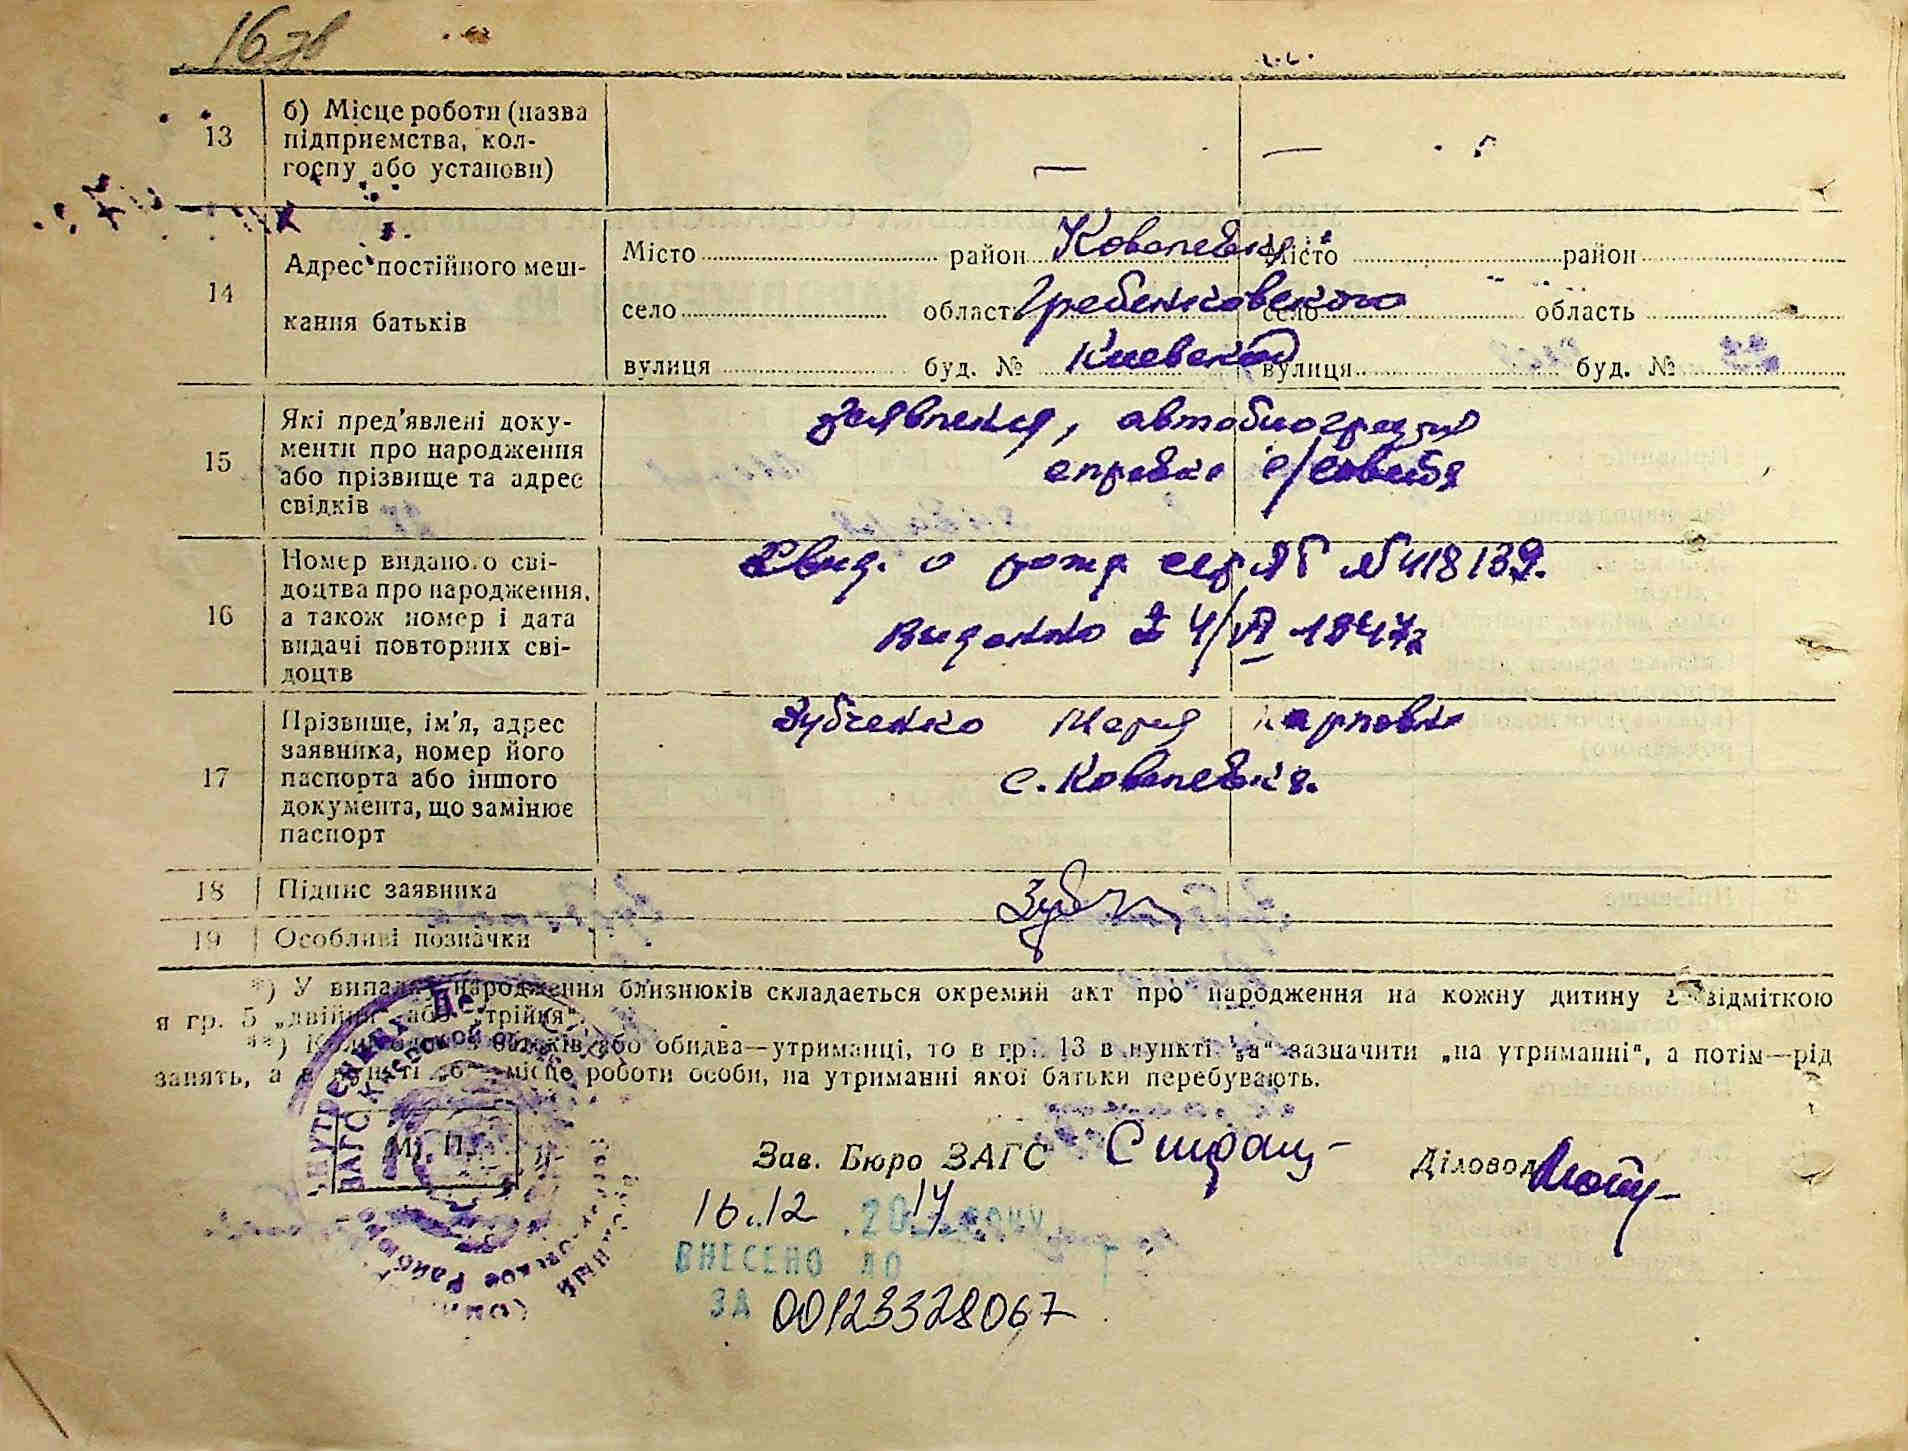 16 зв
13
б) Місце роботи (назва
підприємства, кол-
госпу або установи)
— —
14
Адрес постійного меш-
кання батьків
Місто район Ковалевка Місто район
село област Гребенковского село область
вулиця буд. № Киевской вулиця буд. №
15
Які пред'явлені доку-
менти про народження
або прізвище та адрес
свідків
заявления, автобиография
справка с/совета
16
Номер видано.о сві-
доцтва про народження,
а також номер і дата
видачі повторних сві-
доцтв
Свид. о рожд сер ЯБ № 418139.
Виданно 4/VI 1947г
17
Прізвище, ім'я, адрес
заявника, номер його
паспорта або іншого
документа, що замінює
паспорт
Зубченко Мария Карповна
с. Ковалевка.
18 Підпис заявника
19 Особливі позначки
*) У випадку народження близнюків складається окремий акт про народження на кожну дитину з відміткою
я гр. 5 „двійня" або „трійня".
**) батьків або обидва—утриманці, то в гр. 13 в пункті „а" зазначити „на утриманні", а потім—рід
занять, а в пункті „б" місце роботи особи, на утриманні якої батьки перебувають.
М. П.
Зав. Бюро ЗАГС Діловод
16.12 .2014 року
ВНЕСЕНО ДО
ЗА 00123328067